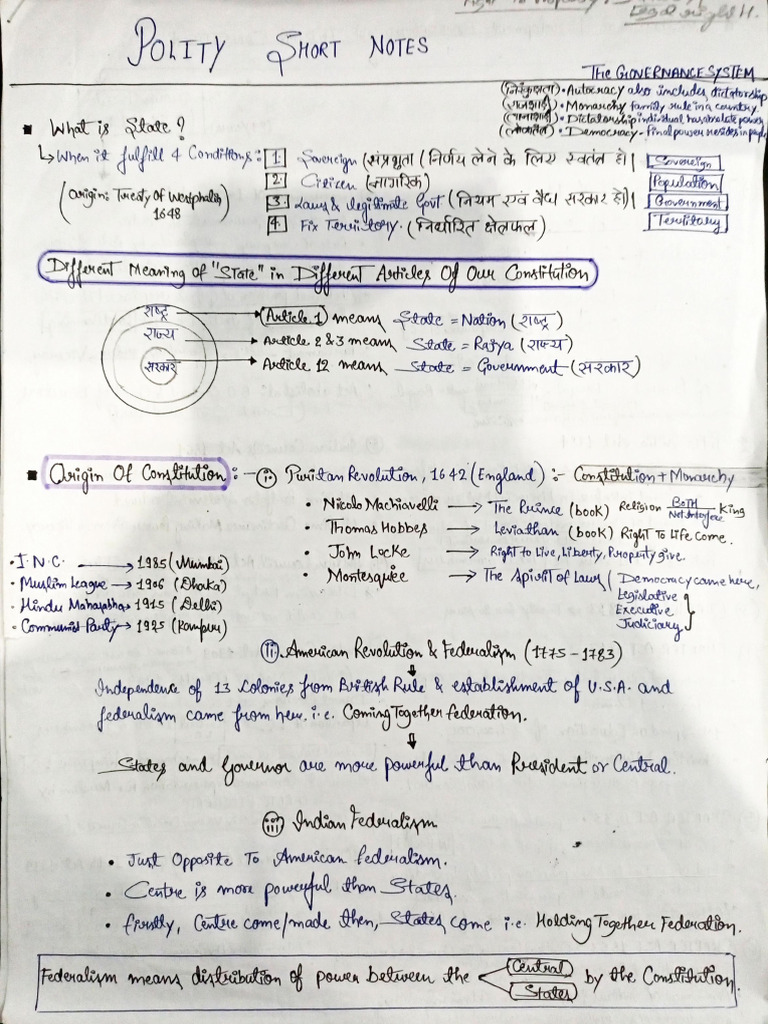 POLITY SHORT NOTES
THE GOVERNANCE SYSTEM
(निरंकुशता) • Autocracy also includes, dictatorship
(राजशाही) • Monarchy family rule in a country.
(तानाशाही) • Dictatorship individual has absolute power
(लोकतंत्र) • Democracy - Final power resides in people
What is State?
↳ When it fulfill 4 Conditions:
(Origin: Treaty of Westphalia 1648)
1. Sovereign (संप्रभुता (निर्णय लेने के लिए स्वतंत्र हो) Sovereign
2. Citizen (नागरिक) Population
3. Laws & legitimate Govt (नियम एवं वैध सरकार हो) Government
4. Fix Territory. (निर्धारित क्षेत्रफल) Territory
Different Meaning of "State" in Different Articles Of Our Constitution
राष्ट्र → Article 1 means State = Nation (राष्ट्र)
राज्य → Article 2 & 3 means State = Rajya (राज्य)
सरकार → Article 12 means State = Government (सरकार)
Origin Of Constitution :- (i) Puritan Revolution, 1642 (England) :- Constitution + Monarchy
• Nicolo Machiavelli → The Prince (book) Religion BOTH Not Interfere King
• Thomas Hobbes → Leviathan (book) Right to Life Come.
• John Locke → Right to Live, Liberty, Property give.
• Montesquiee → The Spirit of Law (Democracy came here,
Legislative
Executive
Judiciary
• I.N.C. → 1985 (Mumbai)
• Muslim League → 1906 (Dhaka)
• Hindu Mahasabha → 1915 (Delhi)
• Communist Party → 1925 (Kanpur)
(ii). American Revolution & Federalism (1775 - 1783)
Independence of 13 Colonies from British Rule & establishment of U.S.A. and
federalism came from her. i.e. Coming Together federation.
States and Governor are more powerful than President or Central.
(iii) Indian Federalism
• Just Opposite To American federalism.
• Centre is more powerful than States.
• firstly, Centre come/made then, States come i.e. Holding Together Federation.
Federalism means distribution of power between the Central States by the Constitution.